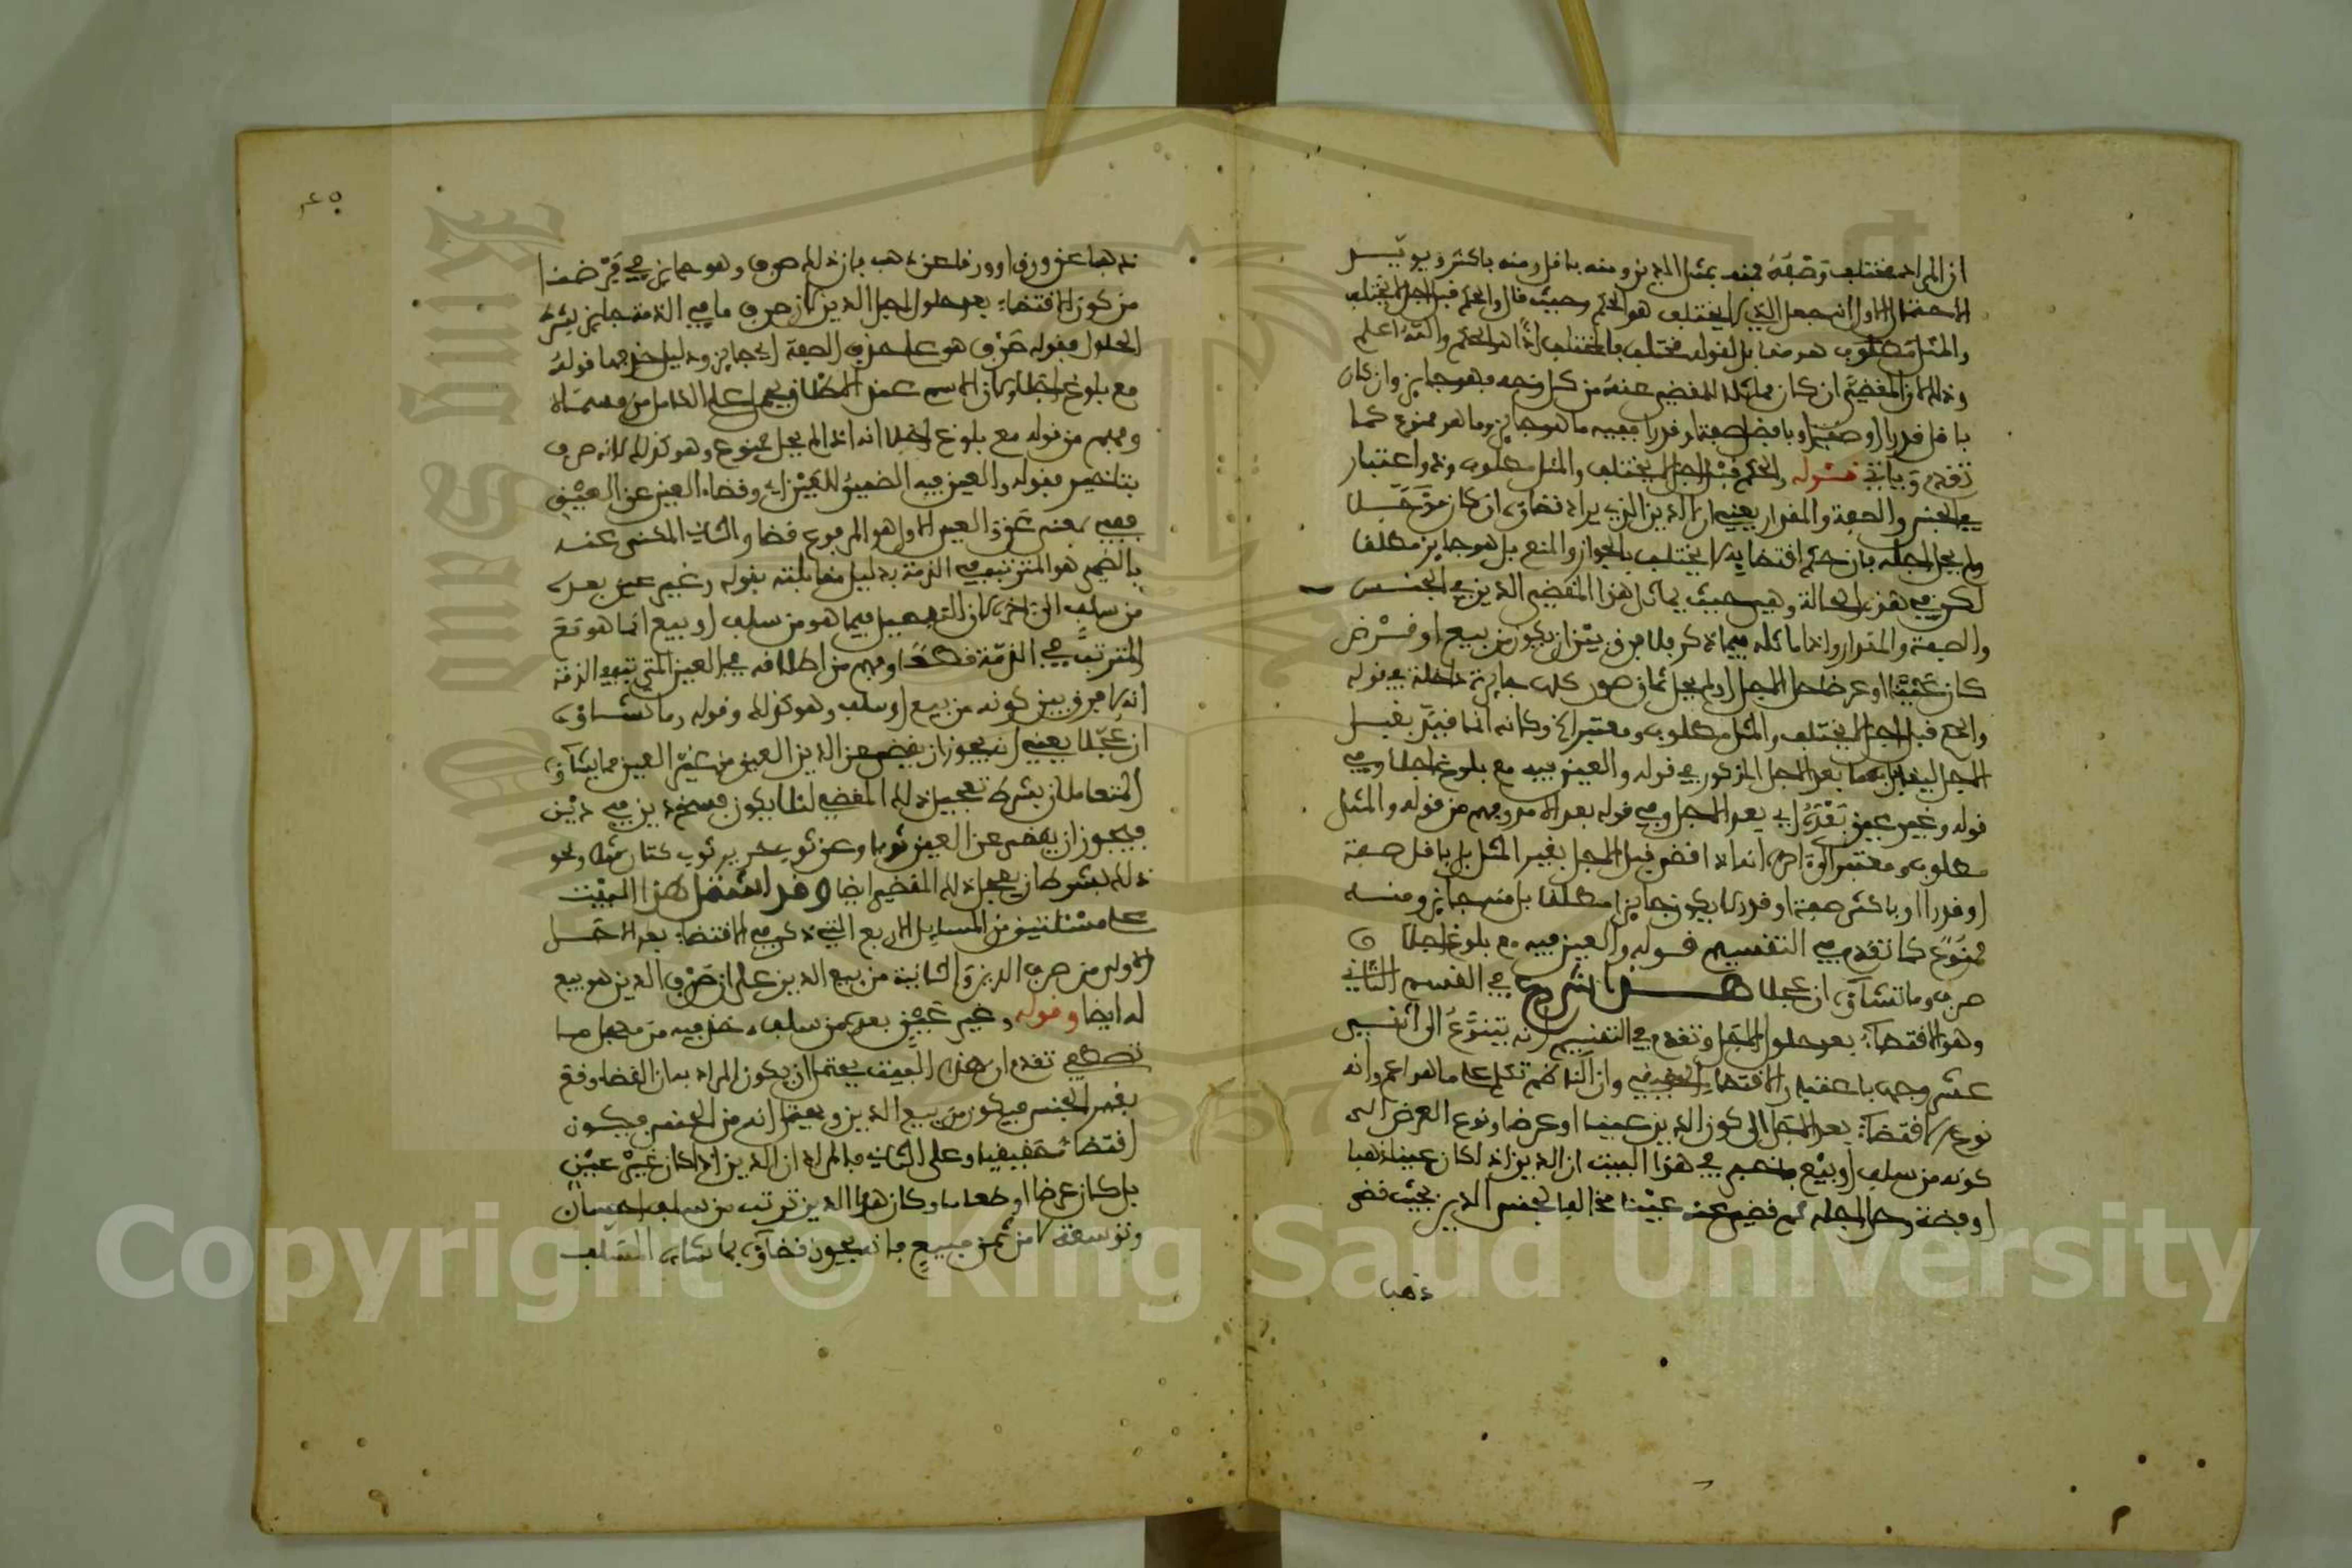 ان المراد مختلف وصفه فمنه بمثل الدين ومنه باقل ومنه باكثر ويؤيد
الاحتمال الاول انه جعل الذي لا يختلف هو الحكم وحيث قال والحكم قبل اجل لا يختلف
والمثل مطلوب هو مقابل لقوله مختلف فالمختلف اذا هو الحكم والله اعلم
وذلك ان المقضي ان كان مماثلا للمقضي عنه من كل وجه فهو جايز وان كان
باقل قدرا او صفة او بافضل صفة او قدرا ففيه ما هو جايز وما هو ممنوع كما
تقدم وياتي قوله والحكم قبل اجل لا يختلف والمثل مطلوب وذو اعتبار
في الجنس والصفة والمقدار يعني ان الدين الذي يراد قضاؤه ان كان مؤجلا
ولم يحل اجله فان حكم اقتضايه لا يختلف بالجواز والمنع بل هو جايز مطلقا
لكن في هذه الحالة وهي حيث يماثل هذا المقضي الدين في الجنس
والصفة والمقدار واذا ماثله فيما ذكر فلا فرق بين ان يكون من بيع او قرض
كان عينا او عرضا حل الاجل او لم يحل ثماني صور كلها جايزة داخلة في قوله
والحكم قبل اجل لا يختلف والمثل مطلوب ومعتبر الخ وكانه انما قيد بقبل
الاجل ليقابل بما بعد الاجل المذكور في قوله والعين فيه مع بلوغ اجلا وفي
قوله وغير عين بعده اي بعد الاجل وفي قوله بعد الامد وفهم من قوله والمثل
مطلوب ومعتبر انه اذا اقتضي قبل الاجل بغير المثل بل باقل صفة
او قدرا او باكثر صفة او قدرا لا يكون جايزا مطلقا بل منه جايز ومنه
ممنوع كما تقدم في التقسيم قوله والعين فيه مع بلوغ اجلا
صرف وما تشاؤه ان عجلا هنا شرع في القسم الثاني
وهو الاقتضاء بعد حلول الاجل وتقدم في التقسيم انه يتنوع الى اثني
عشر وجها باعتبار الاقتضاء وان الناظم تكلم على ما هو اعم وانه
نوع الاقتضاء بعد الاجل الى كون الدين عينا او عرضا ونوع العرض الى
كونه من سلف او بيع فاخبر في هذا البيت ان الدين اذا كان عينا ذهبا
او فضة وحل اجله ثم قضي عنه عينا مخالفا لجنس الدين بحيث قضى
ذهبا
٤٥
ذهبا عن ورق او ورقا عن ذهب فان ذلك صرف وهو جايز في فرضنا
من كون الاقتضاء بعد حلول اجل الدين لان صرف ما في الذمة جايز بشرط
الحلول فقوله صرف هو على حذف الصفة اي جايز ودليل حذفها قوله
مع بلوغ اجلا ولان الاسم عند الاطلاق يحمل على الكامل من مسماه
وفهم من قوله مع بلوغ اجلا انه اذا لم يحل ممنوع وهو كذلك لانه صرف
بتاخير فقوله والعين فيه الضمير للعين اي وقضاء العين عن العين
ففيه بمعنى عن والعين الاول هو المرفوع قضا والثاني المكنى عنه
بالضمير هو المترتب في الذمة بدليل مقابلته بقوله وغير عين بعده
من سلف الى اخره لان التفصيل فيما هو من سلف او بيع انما هو مع
المترتب في الذمة فقط وفهم من اطلاقه في العين التي في الذمة
انه لا فرق بين كونه من بيع او سلف وهو كذلك وقوله وما تشاؤه
ان عجلا يعني انه يجوز ان يقضي عن الدين العين من غير العين مما يشاؤه
المتعاملان بشرط تعجيل ذلك المقضي لئلا يكون فسخ دين في دين
فيجوز ان يقضي عن العين ثوبا وعن ثوب حرير ثوب كتان مثلا ونحو
ذلك بشرط ان يعجل ذلك المقضي ايضا وقد اشتمل هذا البيت
على مسئلتين من المسايل الاربع التي ذكر في الاقتضاء بعد الاجل
الاولى من صرف الدين والثانية من بيع الدين على ان صرف الدين هو بيع
له ايضا وقوله وغير عين بعده من سلف خذ فيه من معجل ما
تصطفي تقدم ان هذا البيت يحتمل ان يكون المراد به ان القضاء وقع
بغير الجنس فيكون من بيع الدين ويحتمل انه من الجنس فيكون
اقتضاء حقيقيا وعلى الثاني فالمراد ان الدين اذا كان غير عين
بل كان عرضا او طعاما وكان هذا الدين ترتب من سلف احسان
وتوسعة لا من ثمن مبيع فانه يجوز قضاؤه بما شاء المسلف